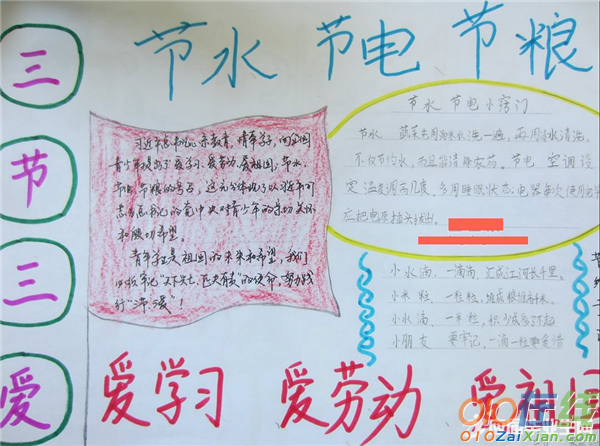 节水 节电 节粮
三
节
三
爱
习近平总书记亲教育,情系学子,向全国
青少年提出了爱学习、爱劳动、爱祖国,节水、
节电、节粮的号召,这充分体现了以习近平同
志为总书记的党中央对青少年的亲切关怀
和殷切希望。
青年학是祖国的未来和希望,我们
"天下兴亡,匹夫有责"的使命,努力践
行"三节三爱"!
节水 节电小窍门
节水 蔬菜先用淘米水洗一遍,再用小水清洗。
不仅节约水,而且能清除农药。节电 空调设
定温度调高几度,多用睡眠状态。电器每次使用
忘把电源插头拔出。
小水滴,一滴滴,汇成江河长千里。
小米粒,一粒粒,
小水滴,一半粒,积少成多了不起
小朋友 要牢记,一滴一粒要爱惜
爱学习 爱劳动 爱祖国
oto在线
OTOZaiXian.COM